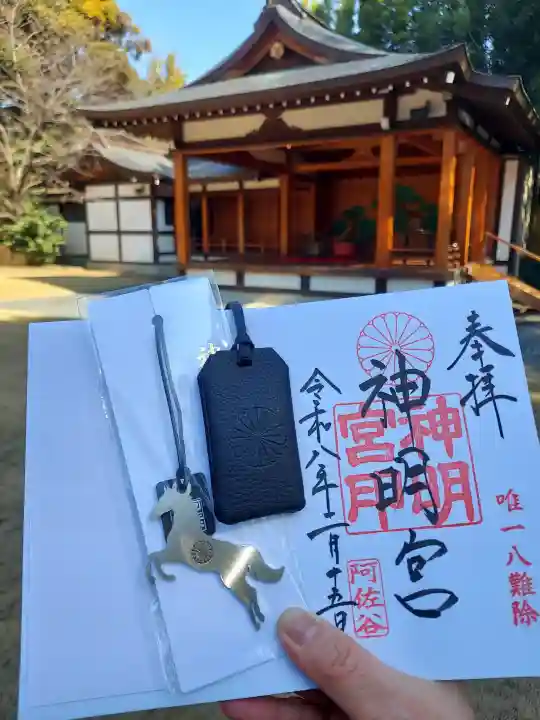 奉拝
神明宮
神明
宮印
唯一八難除
令和八年二月十五日
阿佐谷
神